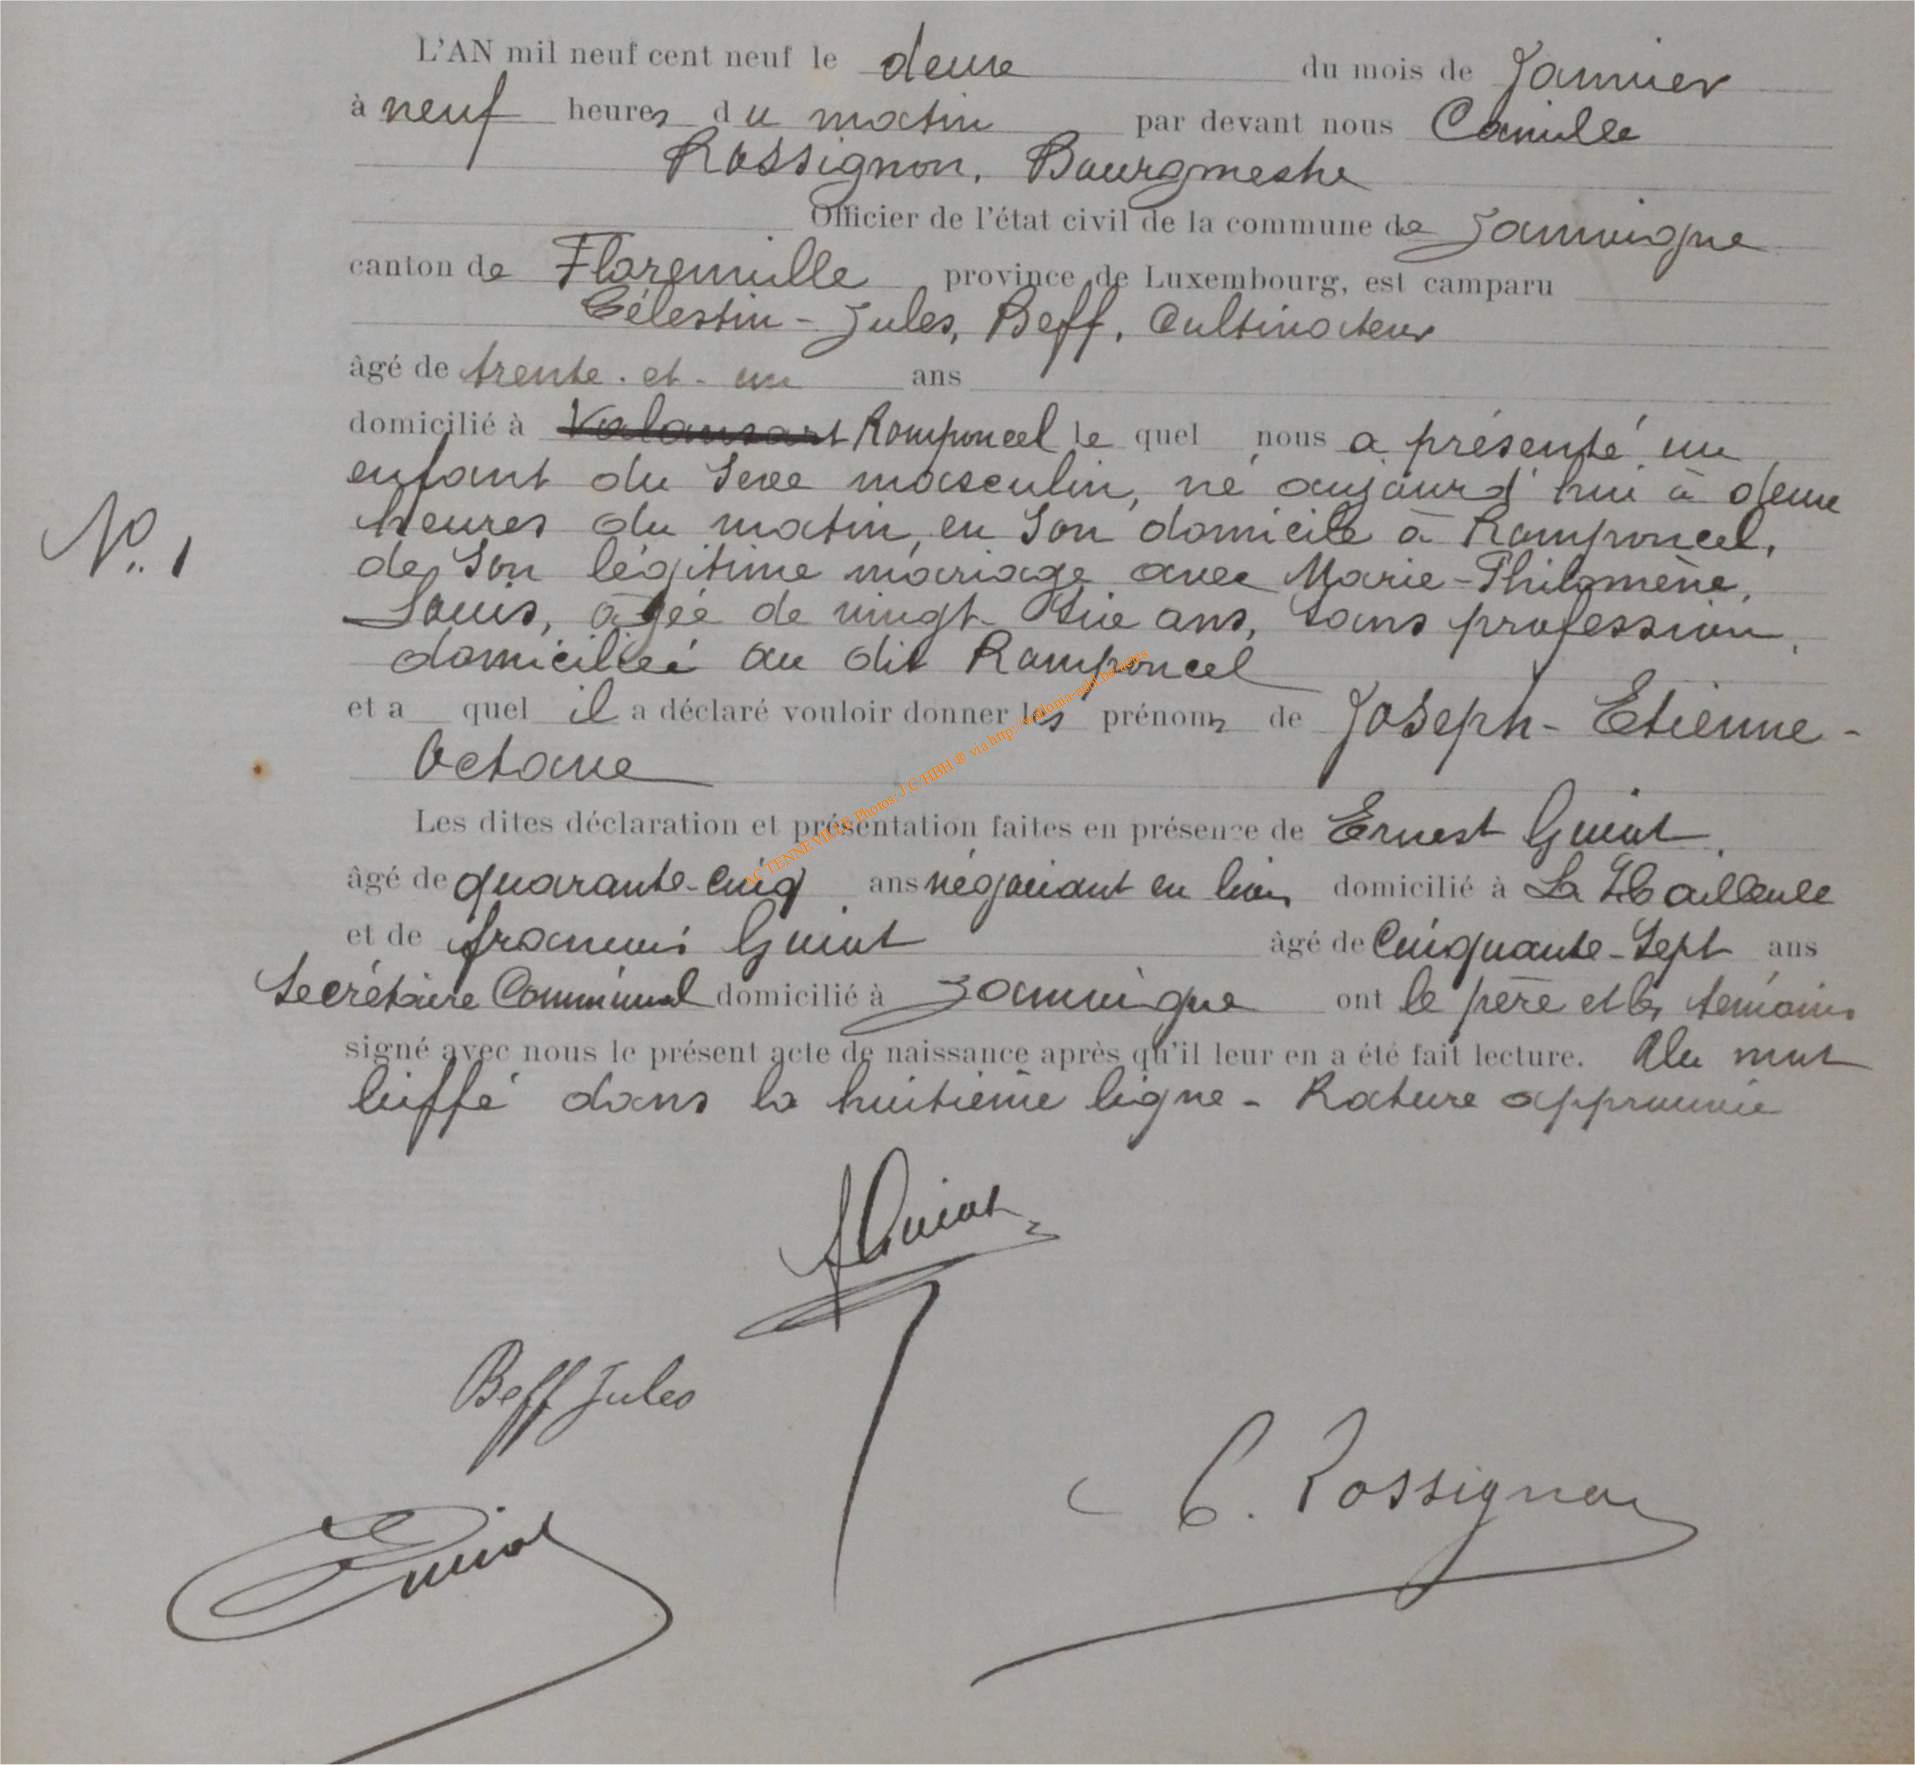 L'AN mil neuf cent neuf le deux du mois de Janvier
à neuf heures du matin par devant nous Camille
Rossignon, Bourgmestre
Officier de l'état civil de la commune de Jamoigne
canton de Florenville province de Luxembourg, est camparu
Célestin-Jules, Beff, Cultivateur
âgé de trente-et-un ans
domicilié à Valansart Romponcel le quel nous a présenté un
enfant du Sexe masculin, né aujourd'hui à deux
heures du matin, en Son domicile à Romponcel,
N° 1
de Son légitime mariage avec Marie-Philomène,
Louis, âgée de vingt-Six ans, Sans profession,
domiciliée au dit Romponcel
et a quel il a déclaré vouloir donner les prénoms de Joseph-Etienne-
Octave
Les dites déclaration et présentation faites en présence de Ernest Guiot,
âgé de quarante-cinq ans négociant en domicilié à La Hailleule
et de françois Guiot âgé de Cinquante-Sept ans
Secrétaire Communal domicilié à Jamoigne ont le père et les témoins
signé avec nous le présent acte de naissance après qu'il leur en a été fait lecture. Un mot
biffé dans la huitième ligne - Rature approuvée
ACTENNEVILLE Photos: J C HBH @ via http://
FGuiot
Beff Jules
C. Rossignon
EGuiot